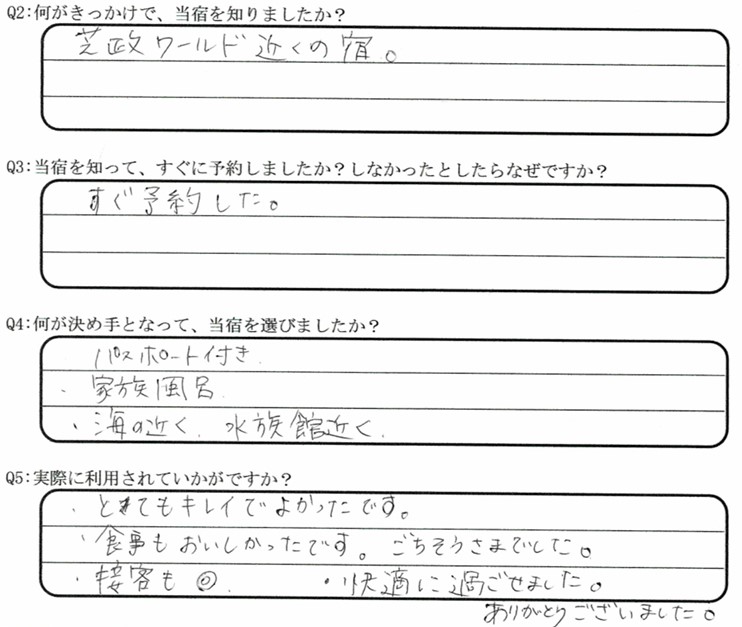 Q2:何がきっかけで、当宿を知りましたか？
芝政ワールド近くの宿。
Q3:当宿を知って、すぐに予約しましたか？しなかったとしたらなぜですか？
すぐ予約した。
Q4:何が決め手となって、当宿を選びましたか？
パスポート付き.
・家族風呂.
・海の近く. 水族館近く.
Q5:実際に利用されていかがですか？
・とてもキレイでよかったです。
・食事もおいしかったです。ごちそうさまでした。
・接客も◎. ・快適に過ごせました。
ありがとうございました。